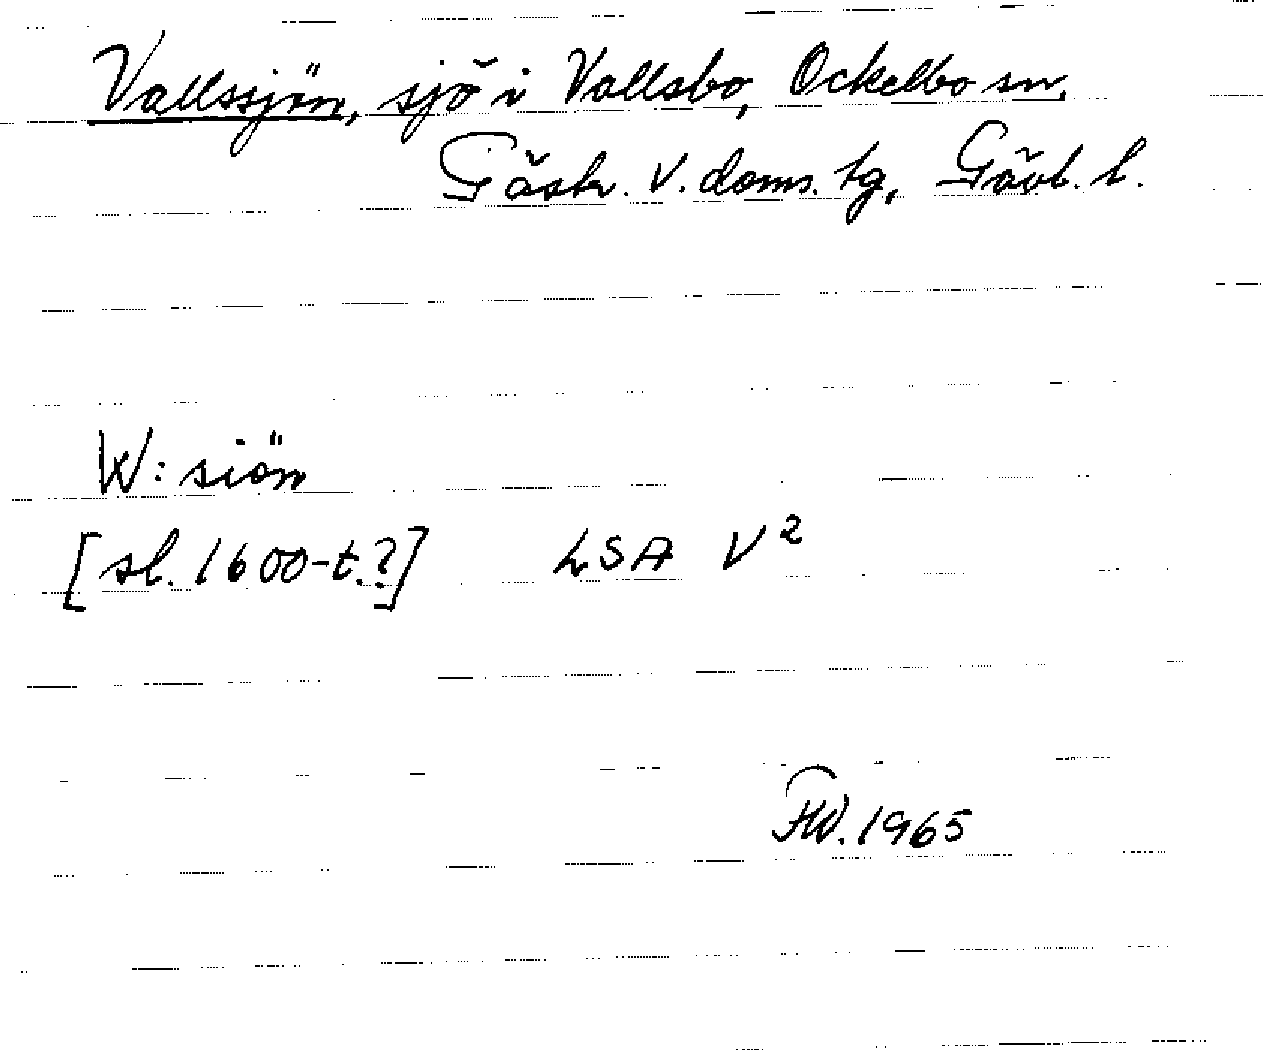 Vallssjön, sjö i Vallsbo, Ockelbo sn,
Gästr. V. doms. tg, Gävl. l.
W: siön
[sl. 1600-t.?] LSA V²
FW. 1965